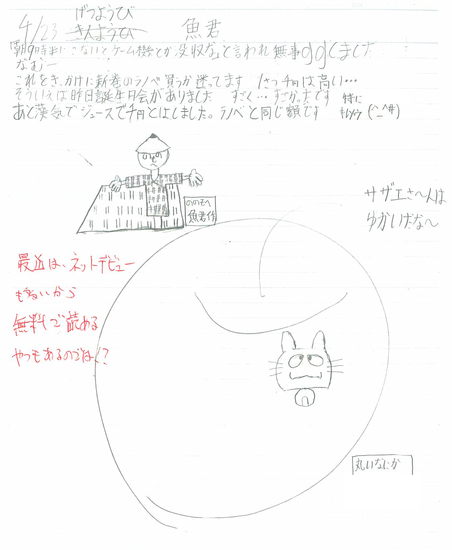 4/23 げつようび 魚君
きんようひ
朝9時半にこないとゲーム機とか没収な」と言われ無事ggくました
なむー
これをきっかけに新巻のラノベ買うか迷ってます 1さつ千円は高い…
そういえば昨日誕生日会がありました すごく…すごかったです 特に
あと漢気でジュースで千円とばしました。ラノベと同じ額です
ののもへ
魚君作
サザエさ〜んは
ゆかいだな〜
最近は、ネットデビュー
も多いから
無料で読める
やつもあるのでは!?
丸いなにか